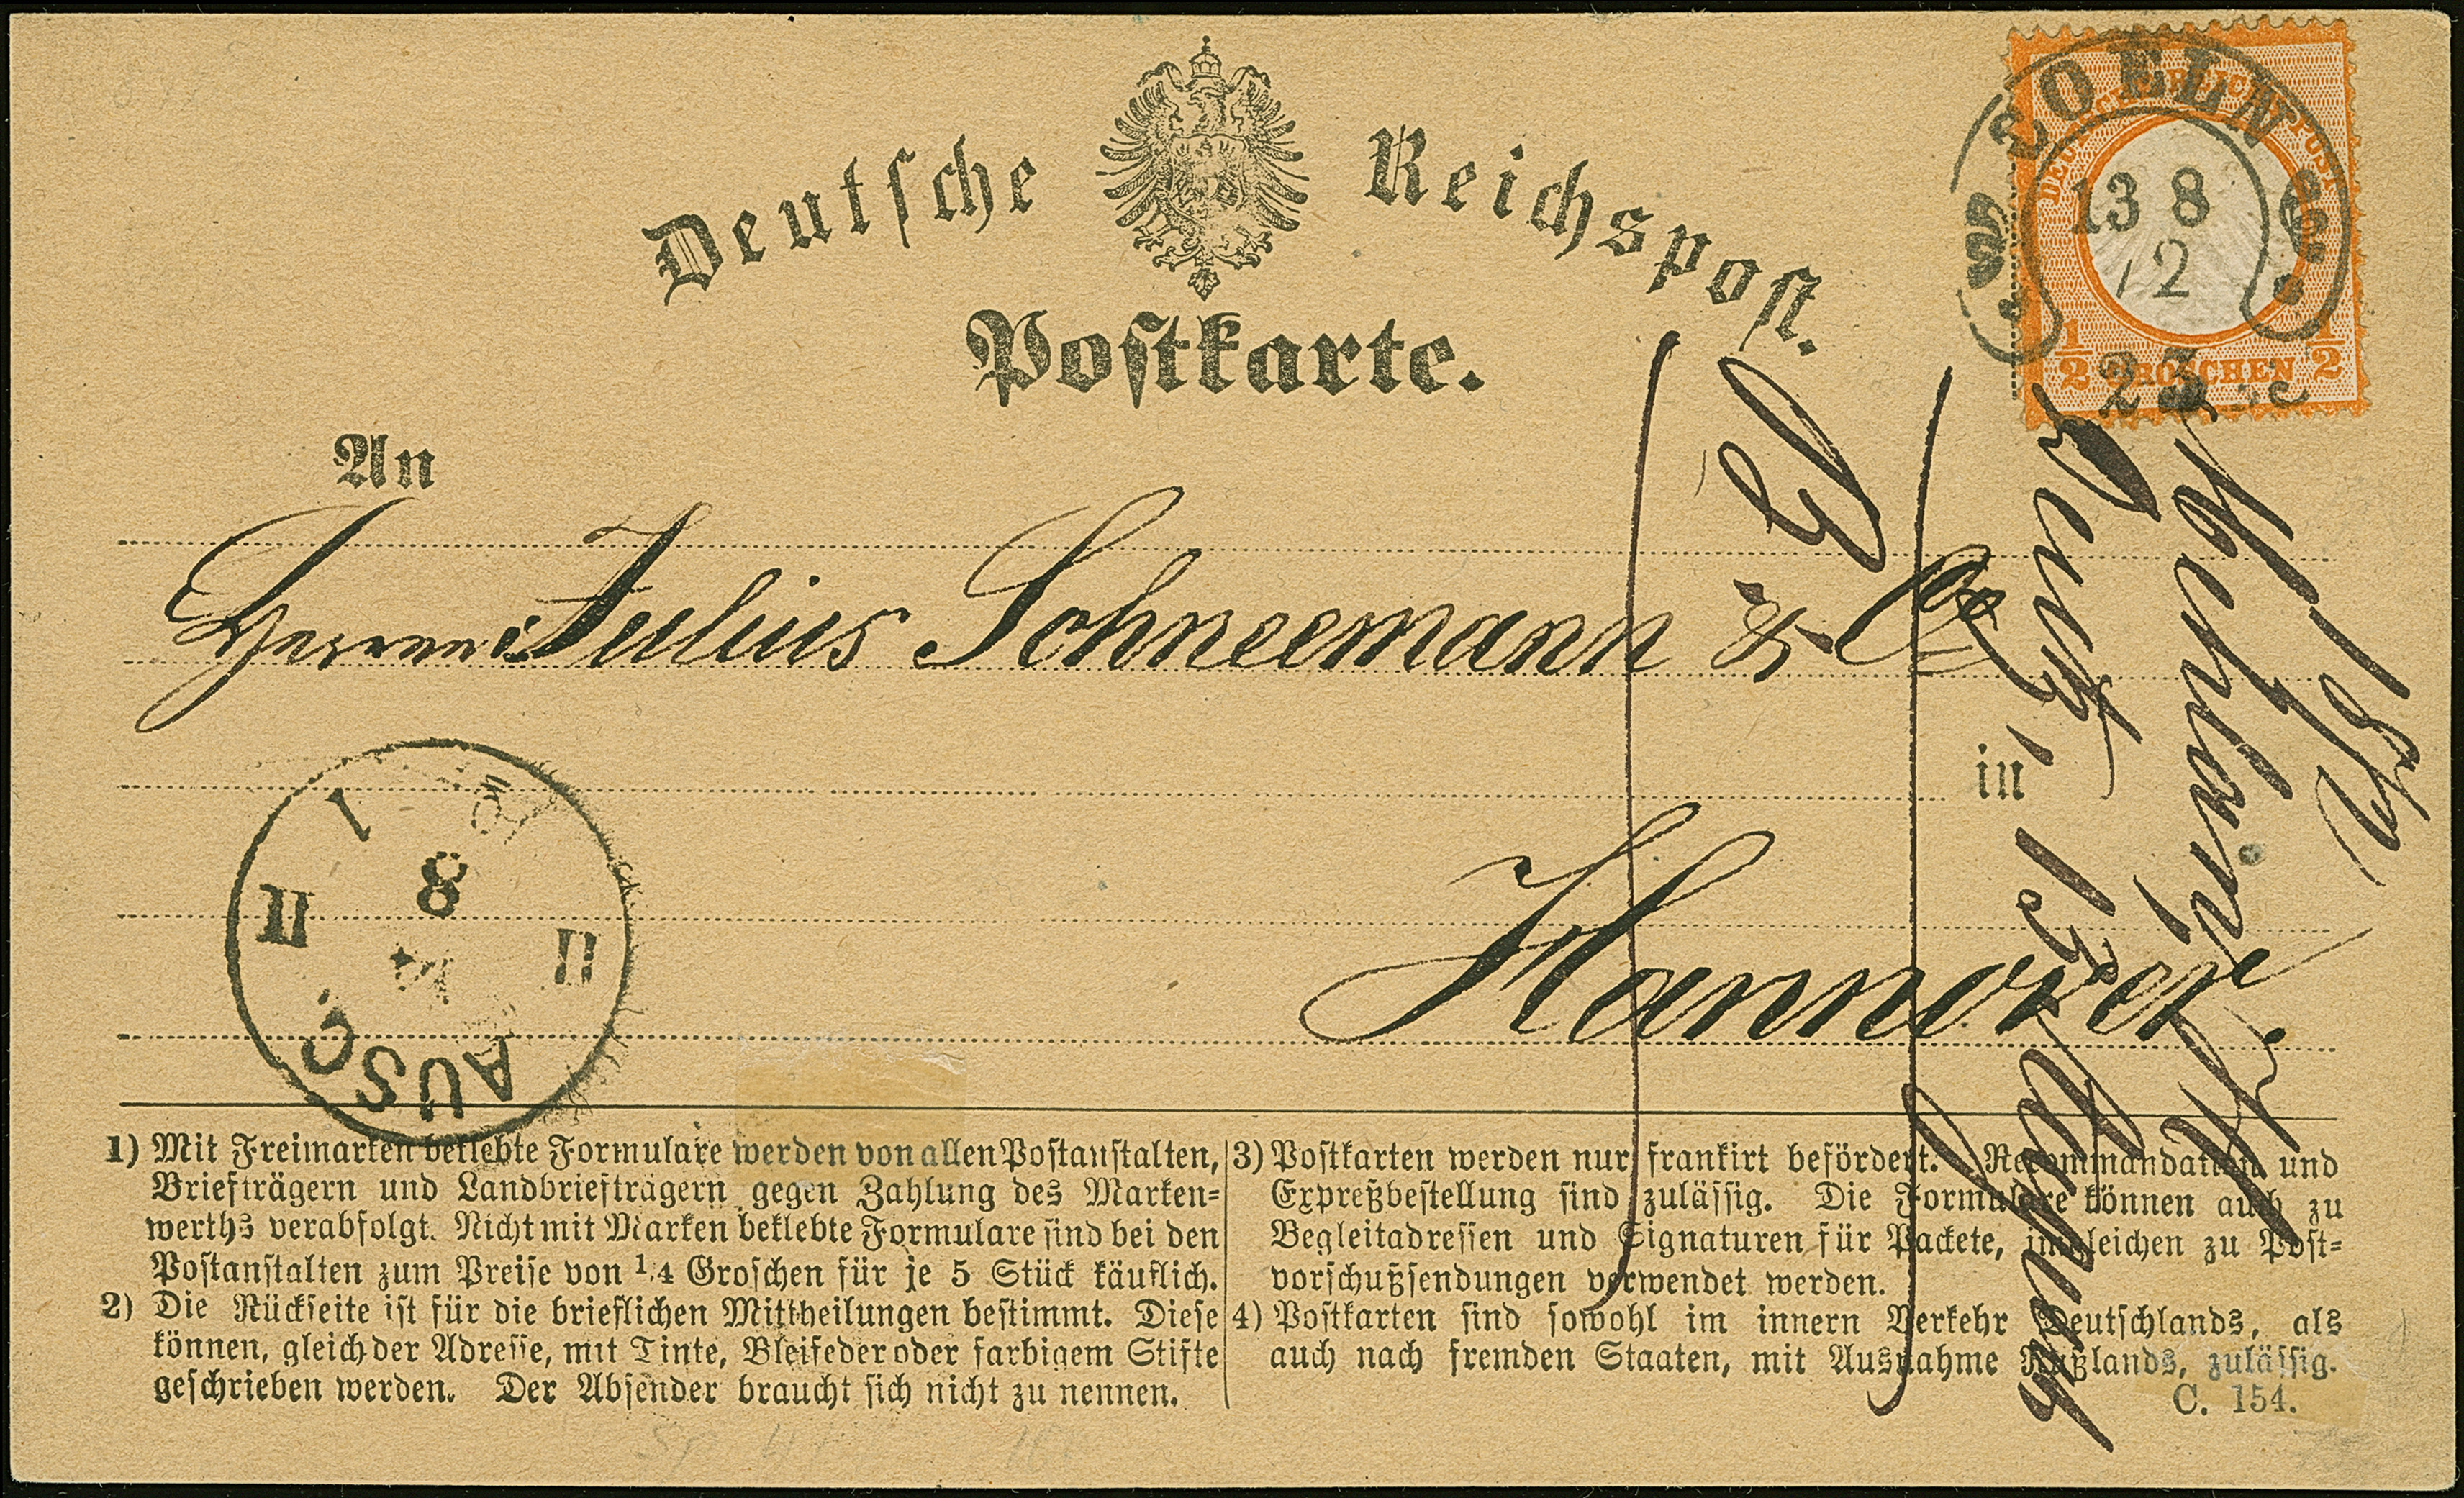 Deutsche Reichspost.
Postkarte.
DEUTSCHE REICHS-POST
1/2 GROSCHEN 1/2
COELN
13 8
12
An
Herren Julius Schneemann & Co
in
Hannover.
AUSG
8
II II
1
1) Mit Freimarken beklebte Formulare werden von allen Postanstalten,
Briefträgern und Landbriefträgern gegen Zahlung des Marken-
werths verabfolgt. Nicht mit Marken beklebte Formulare sind bei den
Postanstalten zum Preise von 1/4 Groschen für je 5 Stück käuflich.
2) Die Rückseite ist für die brieflichen Mittheilungen bestimmt. Diese
können, gleich der Adresse, mit Tinte, Bleifeder oder farbigem Stifte
geschrieben werden. Der Absender braucht sich nicht zu nennen.
3) Postkarten werden nur frankirt befördert. Recommandation und
Expreßbestellung sind zulässig. Die Formulare können auch zu
Begleitadressen und Signaturen für Packete, imgleichen zu Post-
vorschußsendungen verwendet werden.
4) Postkarten sind sowohl im innern Verkehr Deutschlands, als
auch nach fremden Staaten, mit Ausnahme Rußlands, zulässig.
C. 154.